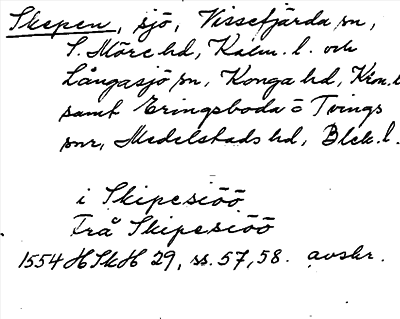 Skepen, sjö, Vissefjärda sn,
S. Möre hd, Kalm. l. och
Långasjö sn, Konga hd, Kron. l
samt Eringsboda o Tvings
snr, Medelstads hd, Blek. l.
i Skipesiöö
Frå Skipesiöö
1554 HSkH 29, ss. 57, 58. avskr.